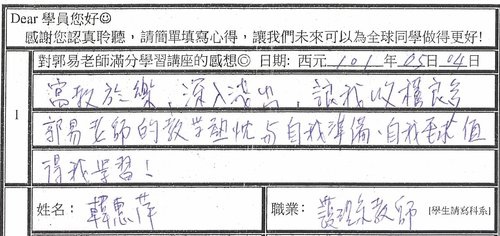 Dear 學員您好☺
感謝您認真聆聽，請簡單填寫心得，讓我們未來可以為全球同學做得更好!
對郭易老師滿分學習講座的感想◎ 日期: 西元 101 年 05 日 04 日
1
寓教於樂，深入淺出，讓我收穫良多
郭易老師的教學熱忱与自我準備、自我要求值
得我學習！
姓名： 韓惠萍
職業： 護理系教師 [學生請寫科系]